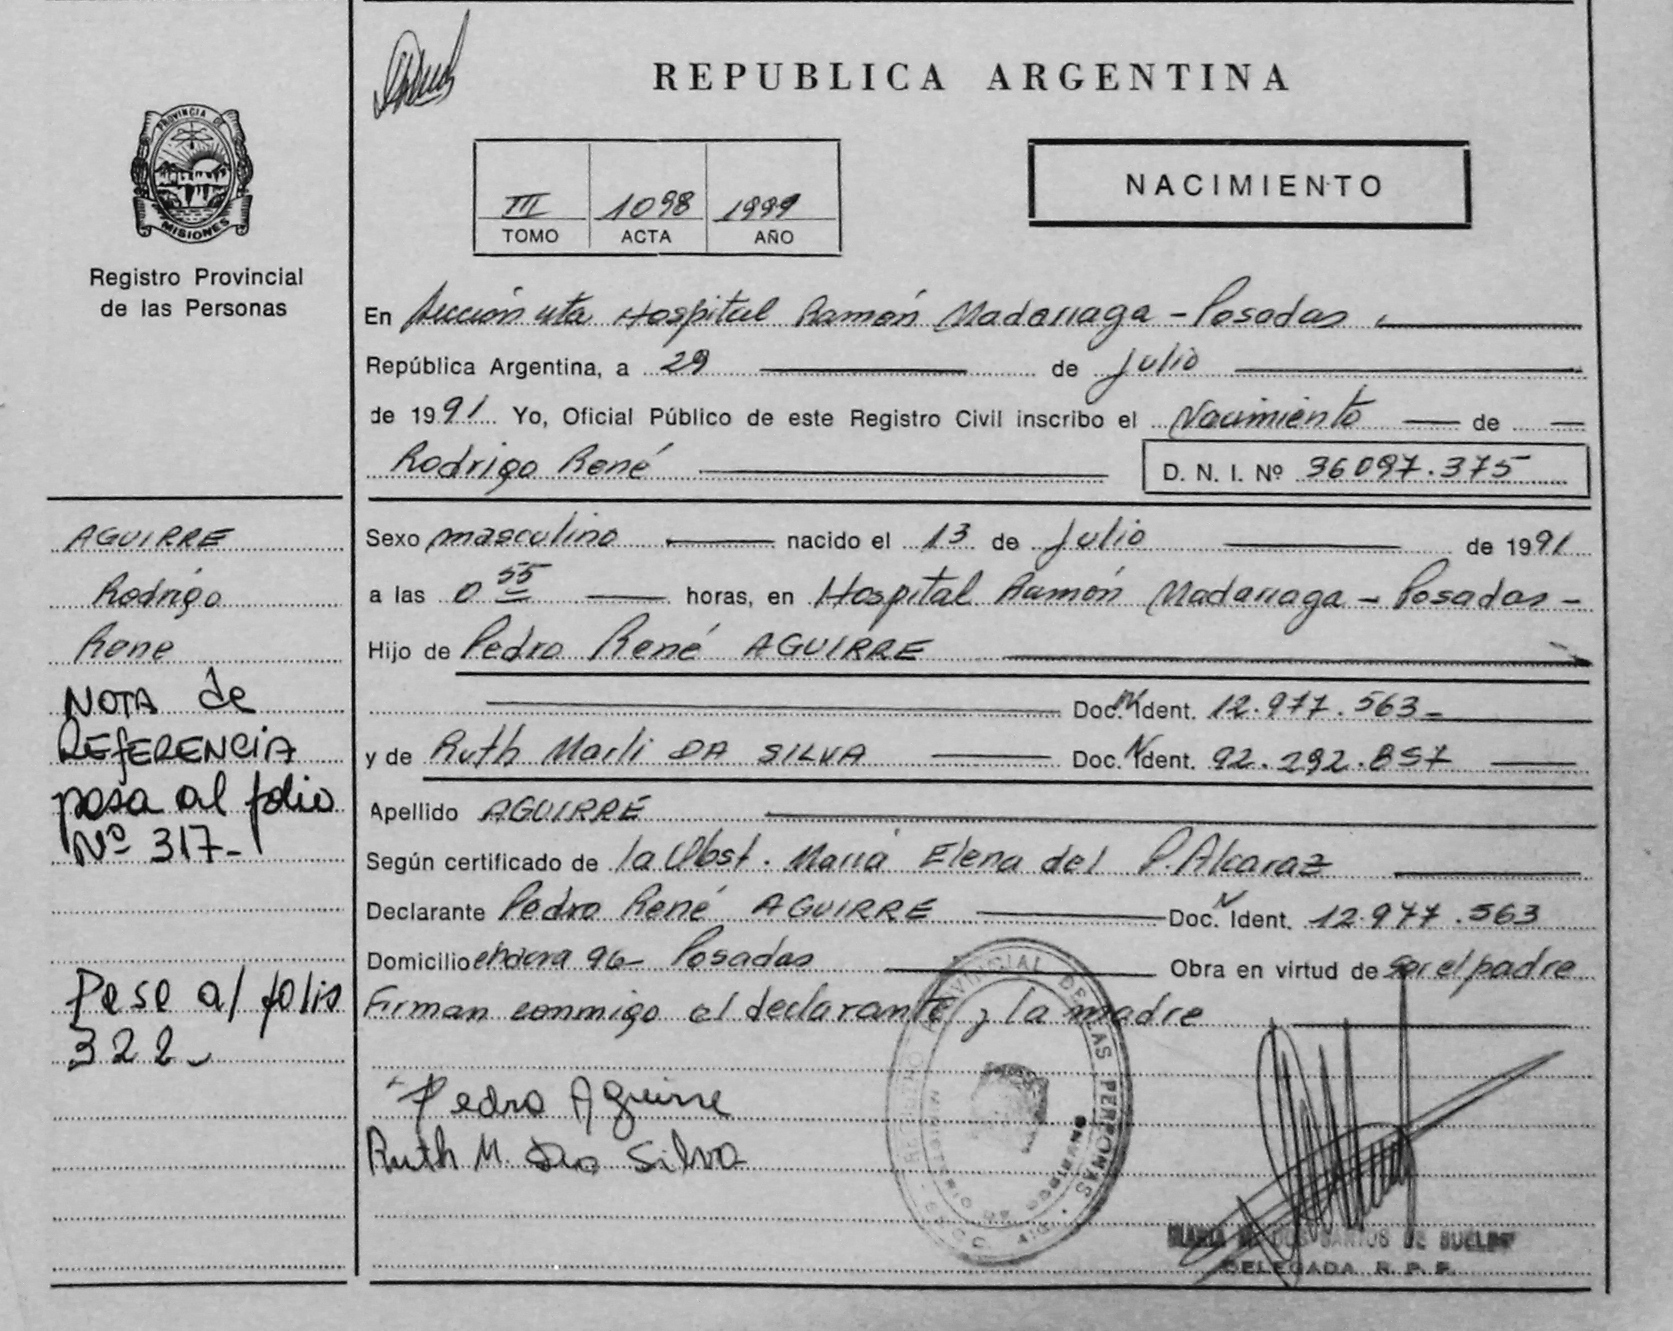 REPUBLICA ARGENTINA
PROVINCIA DE
MISIONES
Registro Provincial
de las Personas
III 1098 1999
TOMO ACTA AÑO
NACIMIENTO
En Sección 4ta Hospital Ramón Madariaga - Posadas
República Argentina, a 29 de Julio
de 1991 Yo, Oficial Público de este Registro Civil inscribo el Nacimiento de
Rodrigo René
D. N. I. Nº 36097.375
AGUIRRE
Rodrigo
Rene
NOTA de
REfERENCiA
pasa al folio
Nº 317-
Pase al folio
322
Sexo masculino nacido el 13 de Julio de 1991
a las 0 55 horas, en Hospital Ramón Madariaga - Posadas -
Hijo de Pedro René AGUIRRE
Doc. N Ident. 12.977.563-
y de Ruth Marli DA SILVA Doc. N Ident. 92.292.857
Apellido AGUIRRE
Según certificado de la Obst. María Elena del P. Alcaraz
Declarante Pedro René AGUIRRE Doc. N Ident. 12.977.563
Domicilio chacra 96 Posadas Obra en virtud de ser el padre
Firman conmigo el declarante y la madre
Pedro Aguirre
Ruth M. Da Silva
PROVINCIAL DE LAS PERSONAS
MINISTERIO DE GOBIERNO
DOS SANTOS DE
DELEGADA R. P. P.